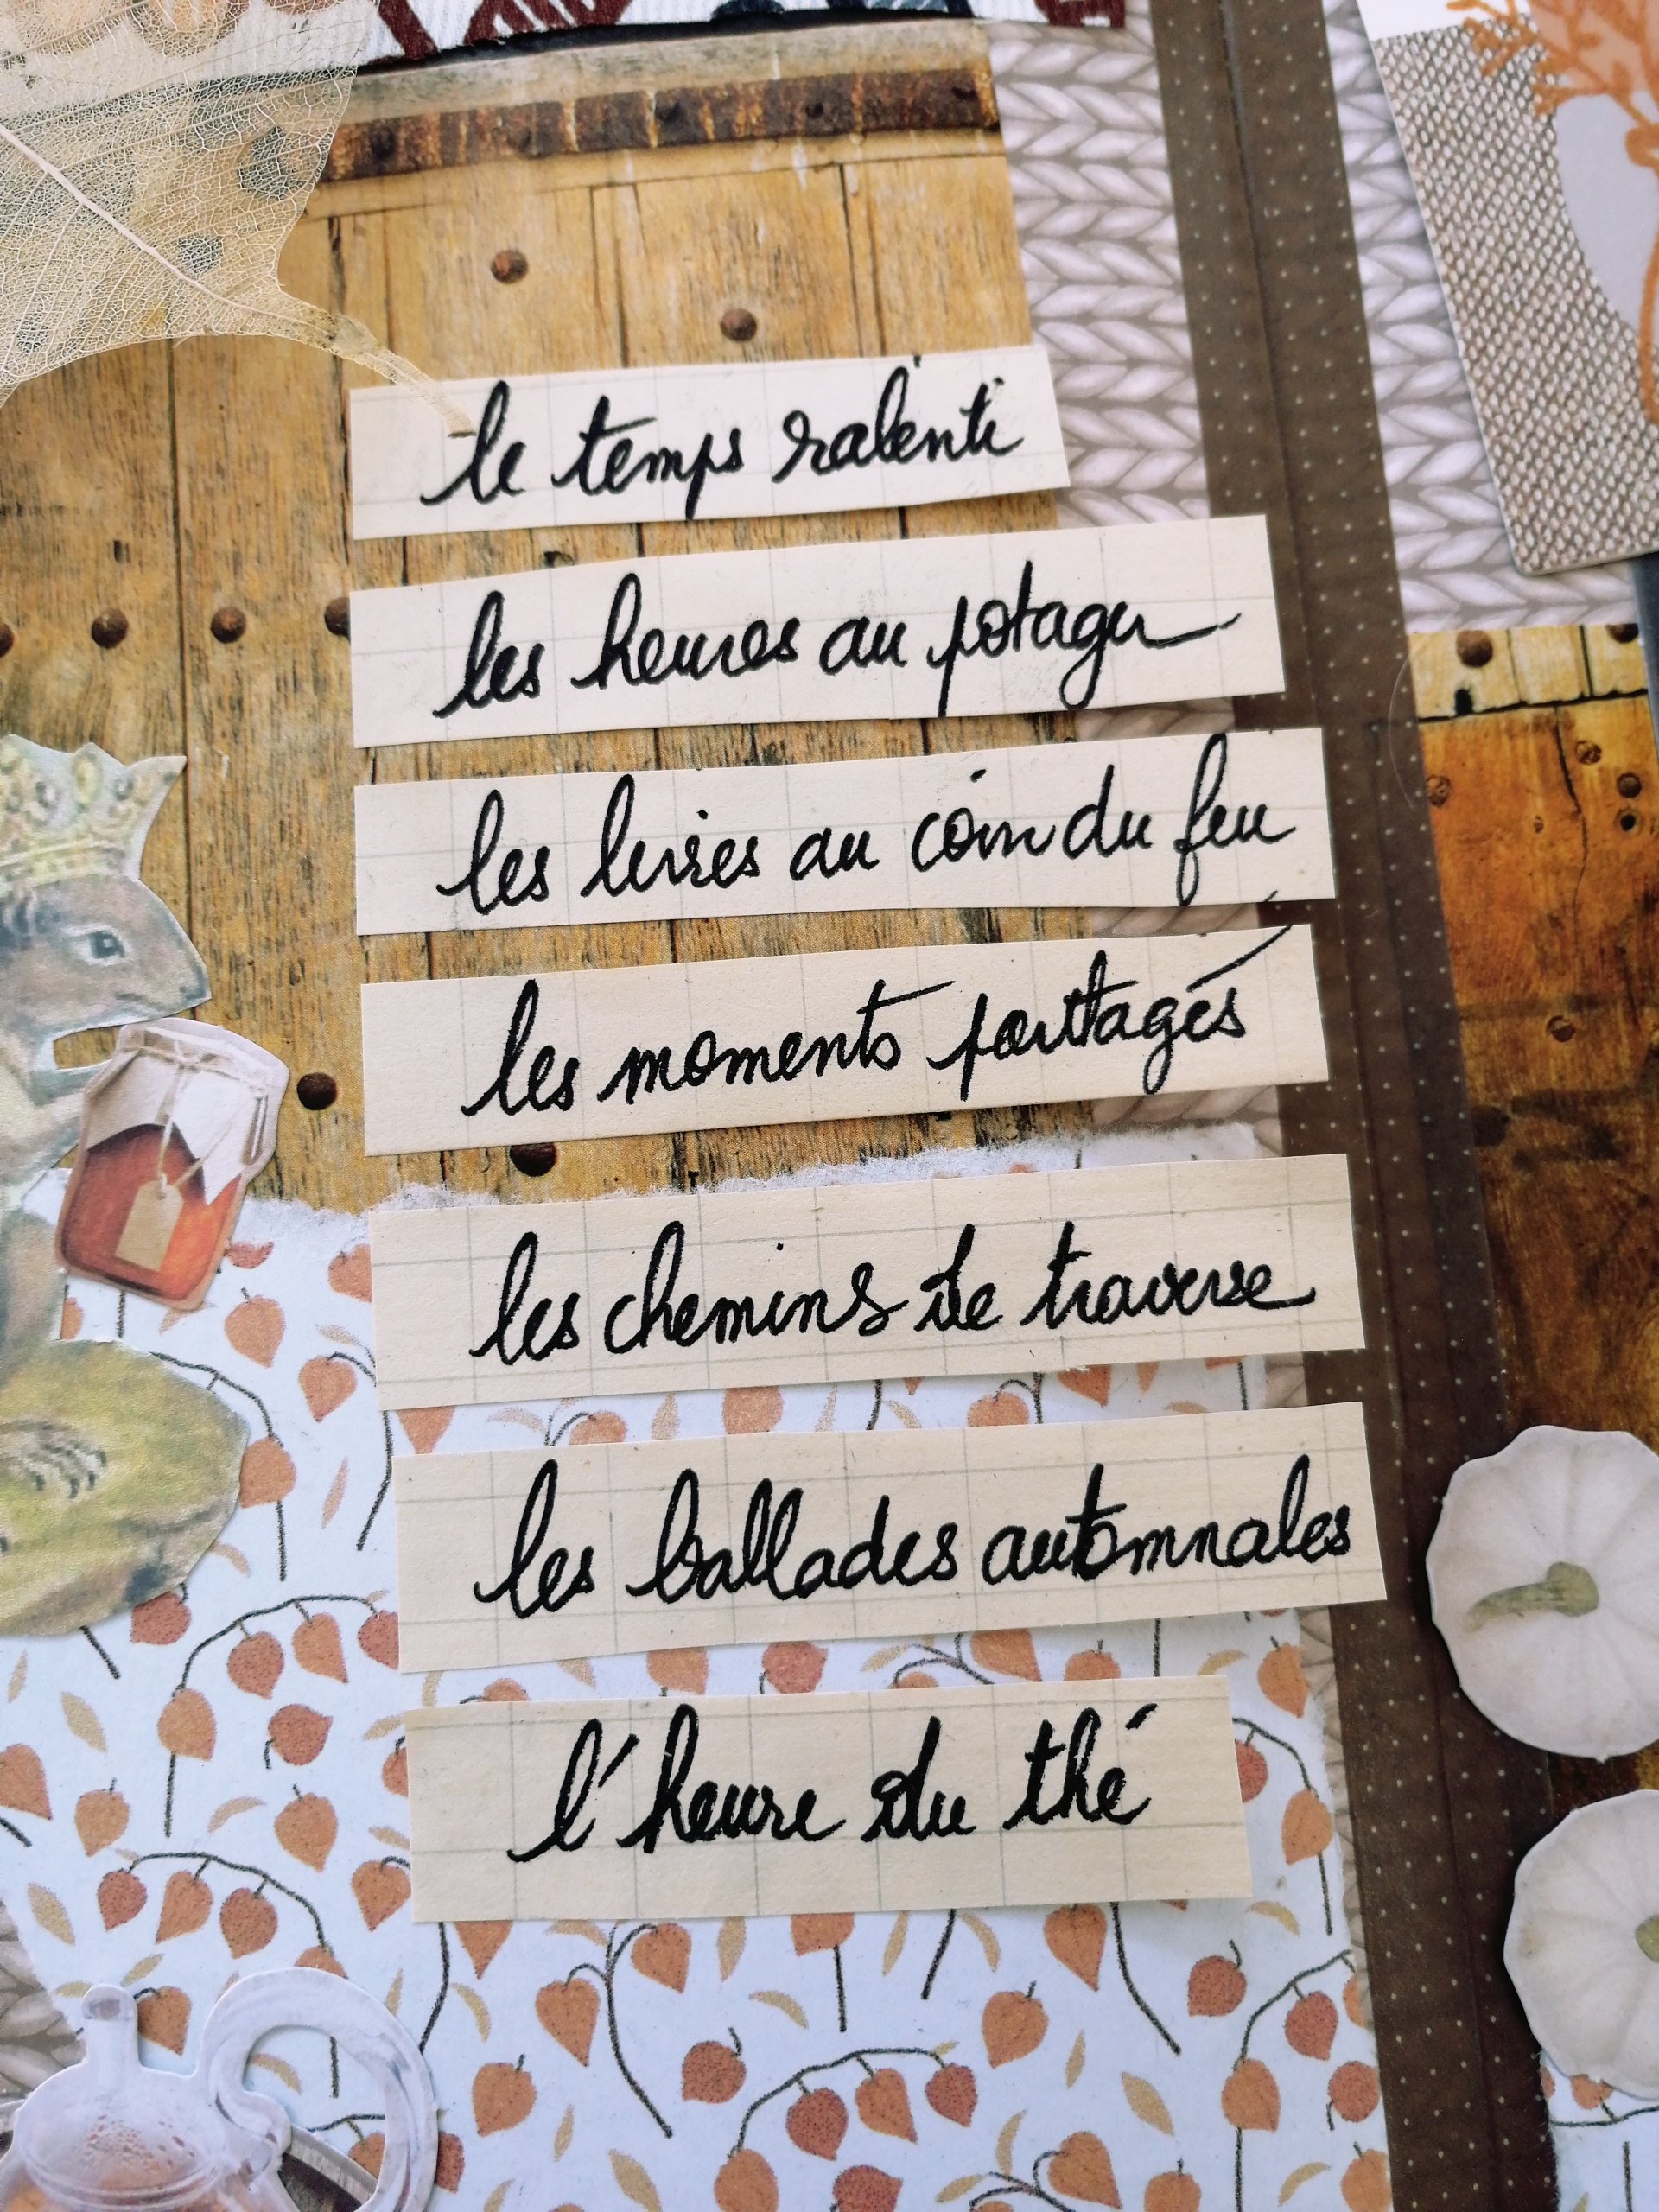 le temps ralenti
les heures au potager
les livres au coin du feu
les moments partagés
les chemins de traverse
les ballades automnales
l'heure du thé